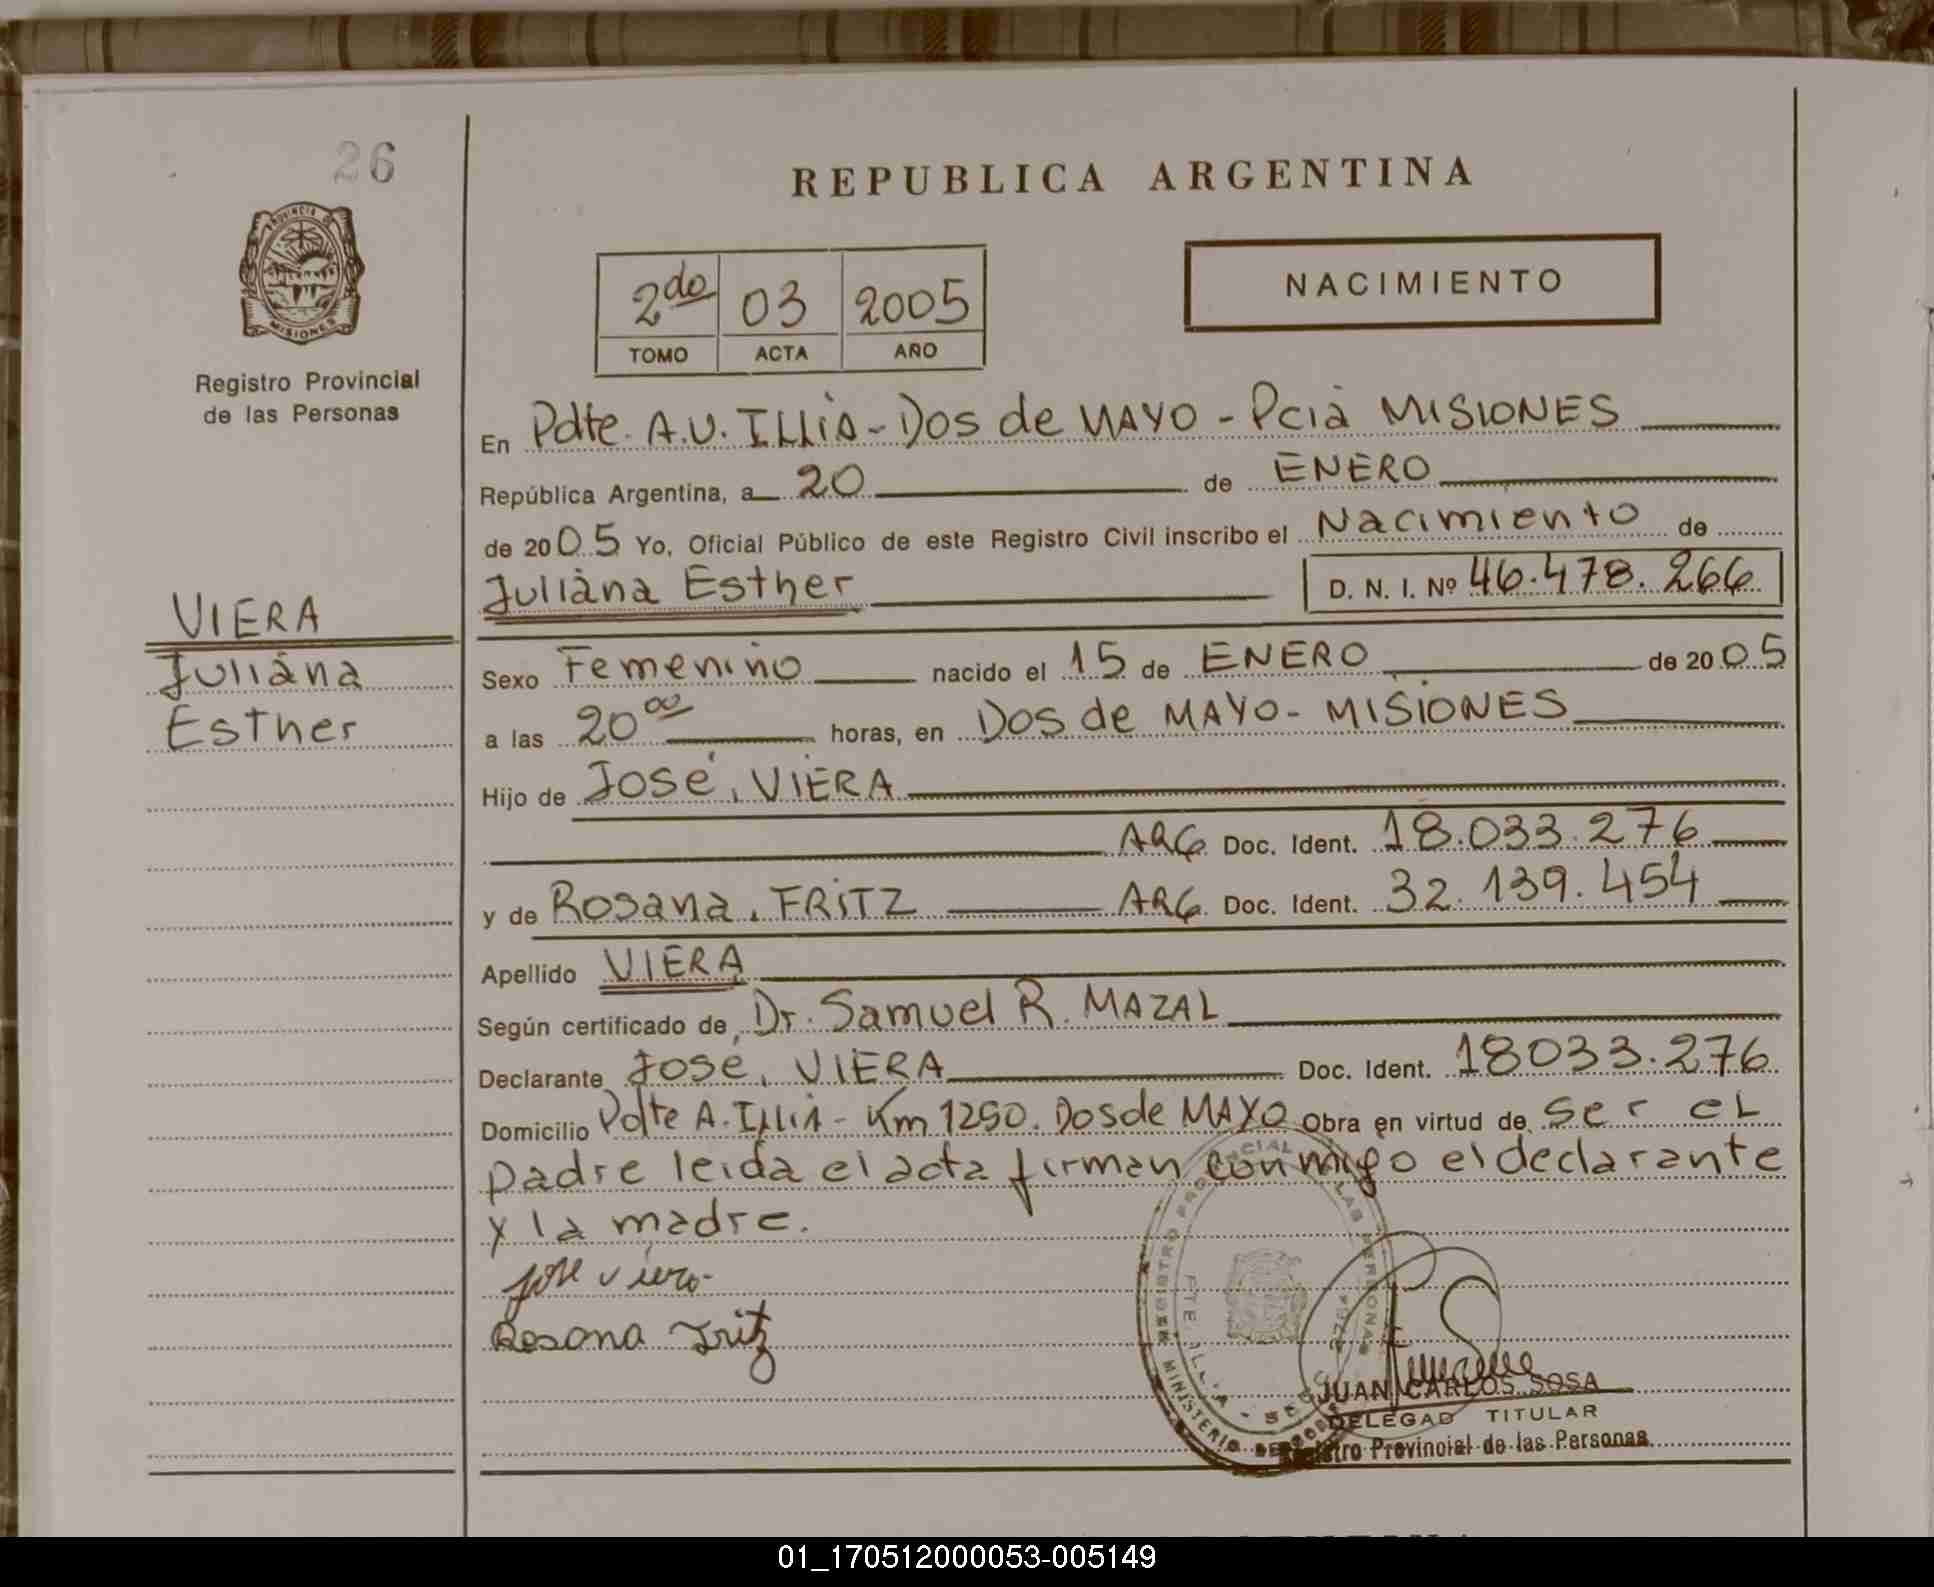 26
REPUBLICA ARGENTINA
PROVINCIA DE
MISIONES
Registro Provincial
de las Personas
2do 03 2005
TOMO ACTA AÑO
NACIMIENTO
En Pdte. A.U. ILLIA - Dos de MAYO - Pcia MISIONES
República Argentina, a 20 de ENERO
de 2005 Yo, Oficial Público de este Registro Civil inscribo el Nacimiento de
Juliana Esther D. N. I. Nº 46.478.266
VIERA
Juliana
Esther
Sexo Femenino nacido el 15 de ENERO de 2005
a las 20 00 horas, en Dos de MAYO - MISIONES
Hijo de José, VIERA
ARG Doc. Ident. 18.033.276
y de Rosana, FRITZ ARG Doc. Ident. 32.139.454
Apellido VIERA
Según certificado de Dr. Samuel R. MAZAL
Declarante José, VIERA Doc. Ident. 18033.276
Domicilio Pdte A. Illia - Km 1250. Dos de MAYO Obra en virtud de ser el
padre leida el acta firman conmigo el declarante
y la madre.
Jose Viera
Rosana Fritz
JUAN CARLOS SOSA
DELEGAD TITULAR
Registro Provincial de las Personas
01_170512000053-005149